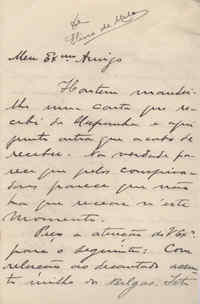 de
Meu Ex.mo Amigo
Hontem mandei-
lhe uma carta que re-
cebi da Hespanha e aqui
junto outra que acabo de
receber. Na verdade pa-
rece que pelos conspira-
dores parece que não
ha que recear n'este
momento.
Peço a attenção de V. Ex.ª
para o seguinte: Com
relação ao descantado assum-
to